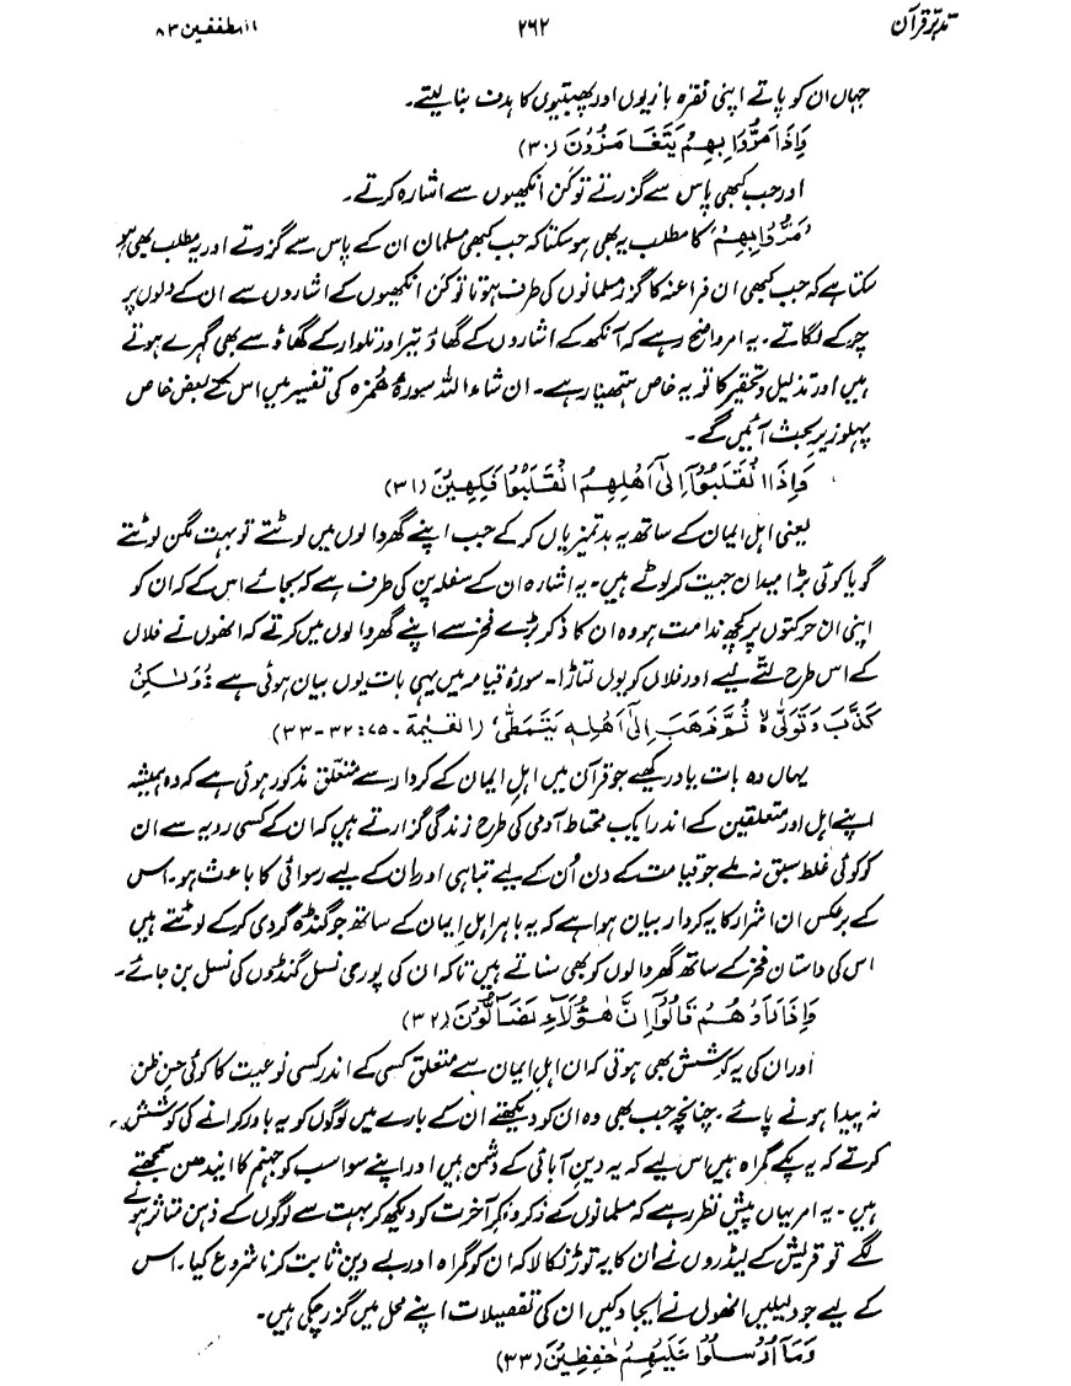 تدبّرِ قرآن ۲۶۲ المطففین ۸۳
جہاں ان کو پاتے اپنی فقرہ بازیوں اور پھبتیوں کا ہدف بنا لیتے۔
وَإِذَا مَرُّوا بِهِمْ يَتَغَامَزُونَ (۳۰)
اور جب کبھی پاس سے گزرتے تو کن انکھیوں سے اشارہ کرتے۔
’مَرُّوا بِهِمْ‘ کا مطلب یہ بھی ہو سکتا کہ جب کبھی مسلمان ان کے پاس سے گزرتے اور یہ مطلب بھی ہو
سکتا ہے کہ جب کبھی ان فراعنہ کا گزر مسلمانوں کی طرف ہوتا تو کن انکھیوں کے اشاروں سے ان کے دلوں پر
چرکے لگاتے۔ یہ امر واضح رہے کہ آنکھ کے اشاروں کے گھاؤ تیر اور تلوار کے گھاؤ سے بھی گہرے ہوتے
ہیں اور تذلیل و تحقیر کا تو یہ خاص ہتھیار ہے۔ ان شاء اللہ سورۂ ھُمزہ کی تفسیر میں اس کے بعض خاص
پہلو زیر بحث آئیں گے۔
وَإِذَا انْقَلَبُوا إِلَىٰ أَهْلِهِمُ انْقَلَبُوا فَكِهِينَ (۳۱)
یعنی اہل ایمان کے ساتھ یہ بدتمیزیاں کر کے جب اپنے گھر والوں میں لوٹتے تو بہت مگن لوٹتے
گویا کوئی بڑا میدان جیت کر لوٹے ہیں۔ یہ اشارہ ان کے سفلہ پن کی طرف ہے کہ بجائے اس کے کہ ان کو
اپنی ان حرکتوں پر کچھ ندامت ہو وہ ان کا ذکر بڑے فخر سے اپنے گھر والوں میں کرتے کہ انھوں نے فلاں
کے اس طرح لتّے لیے اور فلاں کو یوں لتاڑا۔ سورۂ قیامہ میں یہی بات یوں بیان ہوئی ہے ’وَلَٰكِنْ
كَذَّبَ وَتَوَلَّىٰ لا ثُمَّ ذَهَبَ إِلَىٰ أَهْلِهِ يَتَمَطَّىٰ‘ (القيٰمة۔ ۷۵: ۳۲-۳۳)
یہاں وہ بات یاد رکھیے جو قرآن میں اہلِ ایمان کے کردار سے متعلّق مذکور ہوئی ہے کہ وہ ہمیشہ
اپنے اہل اور متعلقین کے اندر ایک محتاط آدمی کی طرح زندگی گزارتے ہیں کہ ان کے کسی رویہ سے ان
کو کوئی غلط سبق نہ ملے جو قیامت کے دن اُن کے لیے تباہی اور ان کے لیے رسوائی کا باعث ہو۔ اس
کے برعکس ان اشرار کا یہ کردار بیان ہوا ہے کہ یہ باہر اہلِ ایمان کے ساتھ جو گنڈہ گردی کر کے لوٹتے ہیں
اس کی داستان فخر کے ساتھ گھر والوں کو بھی سناتے ہیں تاکہ ان کی پوری نسل گنڈوں کی نسل بن جائے۔
وَإِذَا رَأَوْهُمْ قَالُوا إِنَّ هَٰؤُلَاءِ لَضَالُّونَ (۳۲)
اور ان کی یہ کوشش بھی ہوتی کہ ان اہلِ ایمان سے متعلق کسی کے اندر کسی نوعیت کا کوئی حسنِ ظن
نہ پیدا ہونے پائے۔ چنانچہ جب بھی وہ ان کو دیکھتے ان کے بارے میں لوگوں کو یہ باور کرانے کی کوشش
کرتے کہ یہ پکے گمراہ ہیں اس لیے کہ یہ دینِ آبائی کے دشمن ہیں اور اپنے سوا سب کو جہنم کا ایندھن سمجھتے
ہیں۔ یہ امر یہاں پیشِ نظر رہے کہ مسلمانوں کے ذکر و فکرِ آخرت کو دیکھ کر بہت سے لوگوں کے ذہن متاثر ہونے
لگے تو قریش کے لیڈروں نے اُن کا یہ توڑ نکالا کہ ان کو گمراہ اور بے دین ثابت کرنا شروع کیا۔ اس
کے لیے جو دلیلیں انھوں نے ایجاد کیں ان کی تفصیلات اپنے محل میں گزر چکی ہیں۔
وَمَا أُرْسِلُوا عَلَيْهِمْ حٰفِظِينَ (۳۳)